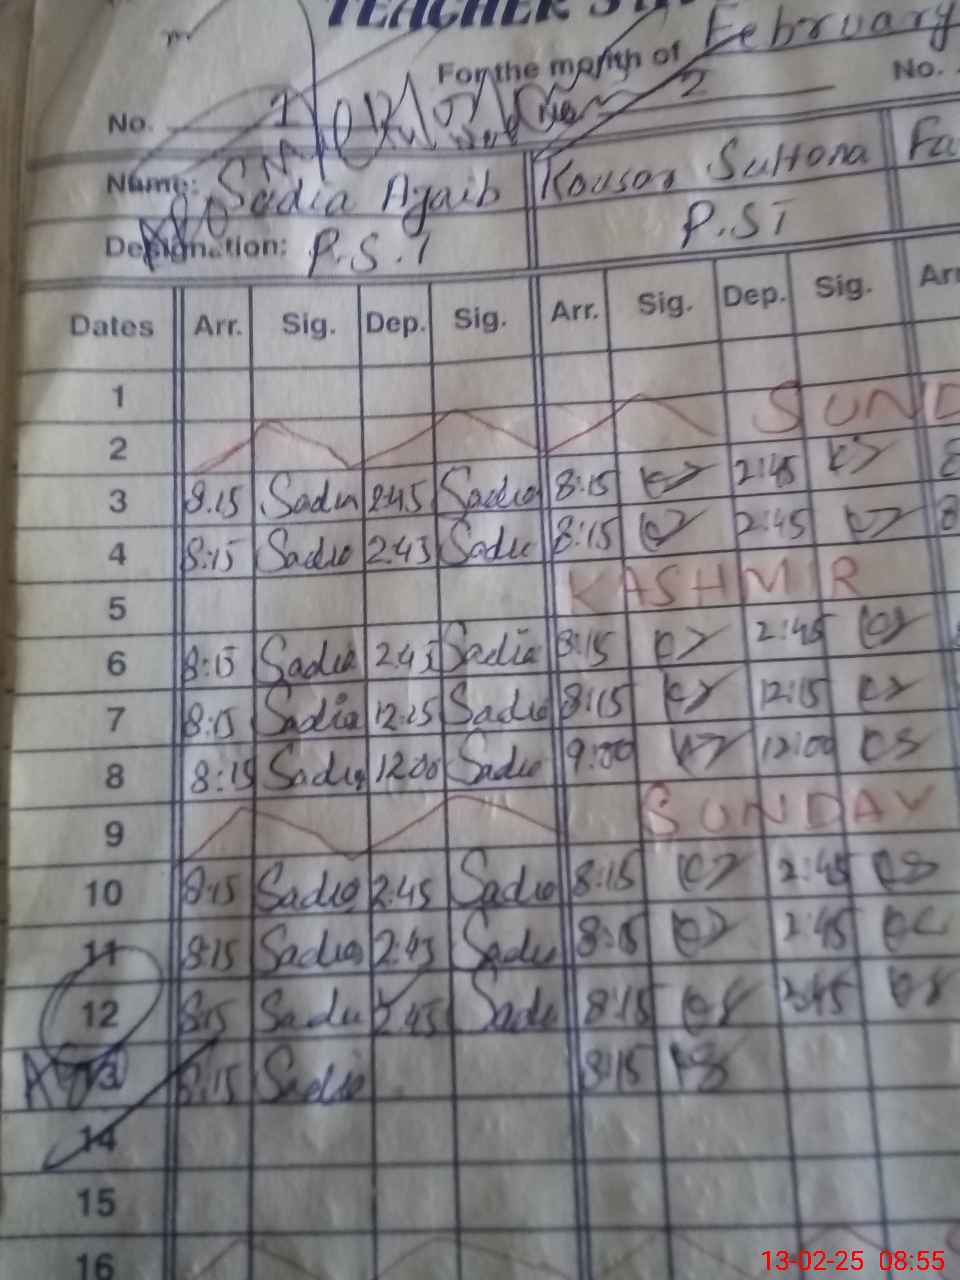 TEACHER
For the month of February
No. 1 2 No.
Name: Sadia Ajaib Kousar Sultana Fa
Designation: P.S.T P.ST
Dates Arr. Sig. Dep. Sig. Arr. Sig. Dep. Sig. Arr
1
2 SUND
3 8:15 Sadia 2:45 Sadia 8:15 KS 2:45 KS 8
4 8:15 Sadia 2:45 Sadia 8:15 KS 2:45 KS 8
5 KASHMIR
6 8:15 Sadia 2:45 Sadia 8:15 KS 2:45 KS
7 8:15 Sadia 12:15 Sadia 8:15 KS 12:15 KS
8 8:15 Sadia 12:00 Sadia 9:00 KS 12:00 KS
9 SUNDAY
10 8:15 Sadia 2:45 Sadia 8:15 KS 2:45 KS
11 8:15 Sadia 2:45 Sadia 8:15 KS 2:45 KS
12 8:15 Sadia 2:45 Sadia 8:15 KS 2:45 KS
13 8:15 Sadia 8:15 KS
14
15
16
13-02-25 08:55